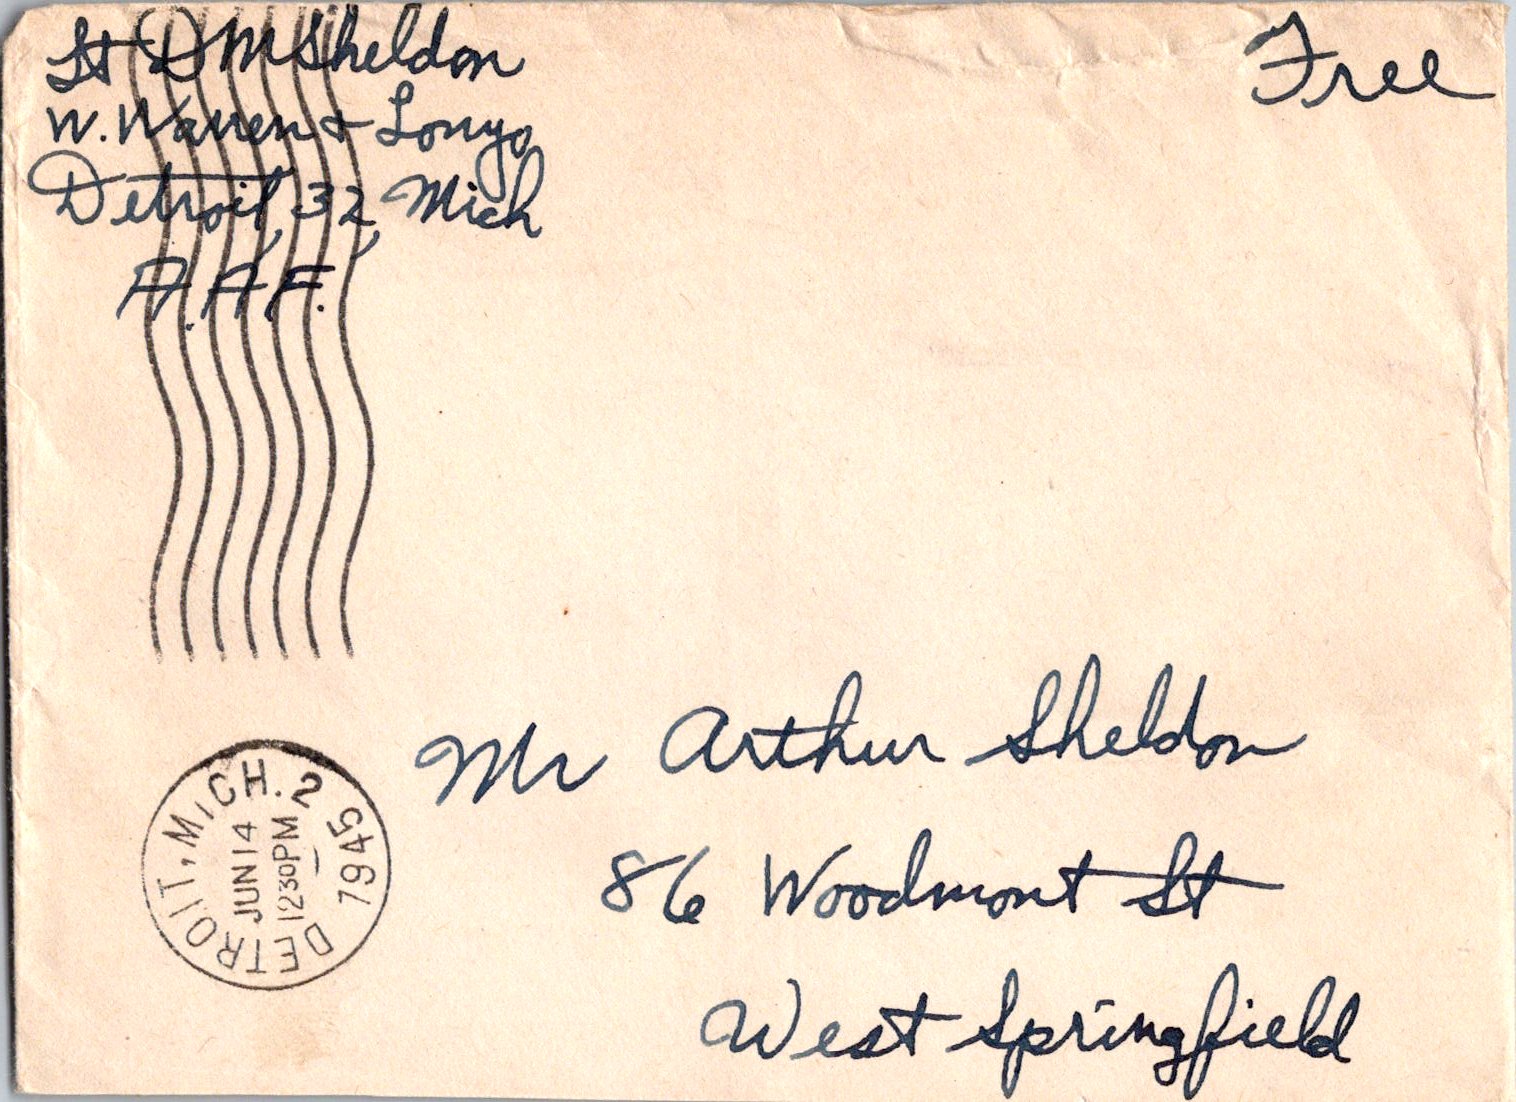 Lt D M Sheldon
W. Warren & Lonyo
Detroit, 32, Mich
A.A.F.
Free
DETROIT, MICH. 2
JUN 14
12 30 PM
1945
Mr Arthur Sheldon
86 Woodmont St
West Springfield